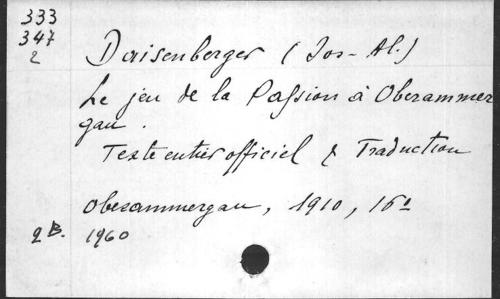 333
347
2
Daisenberger (Jos-Al.)
Le jeu de la Passion à Oberammer
gau.
Texte entier officiel & Traduction
Oberammergau, 1910, 16º
2 B.
1960